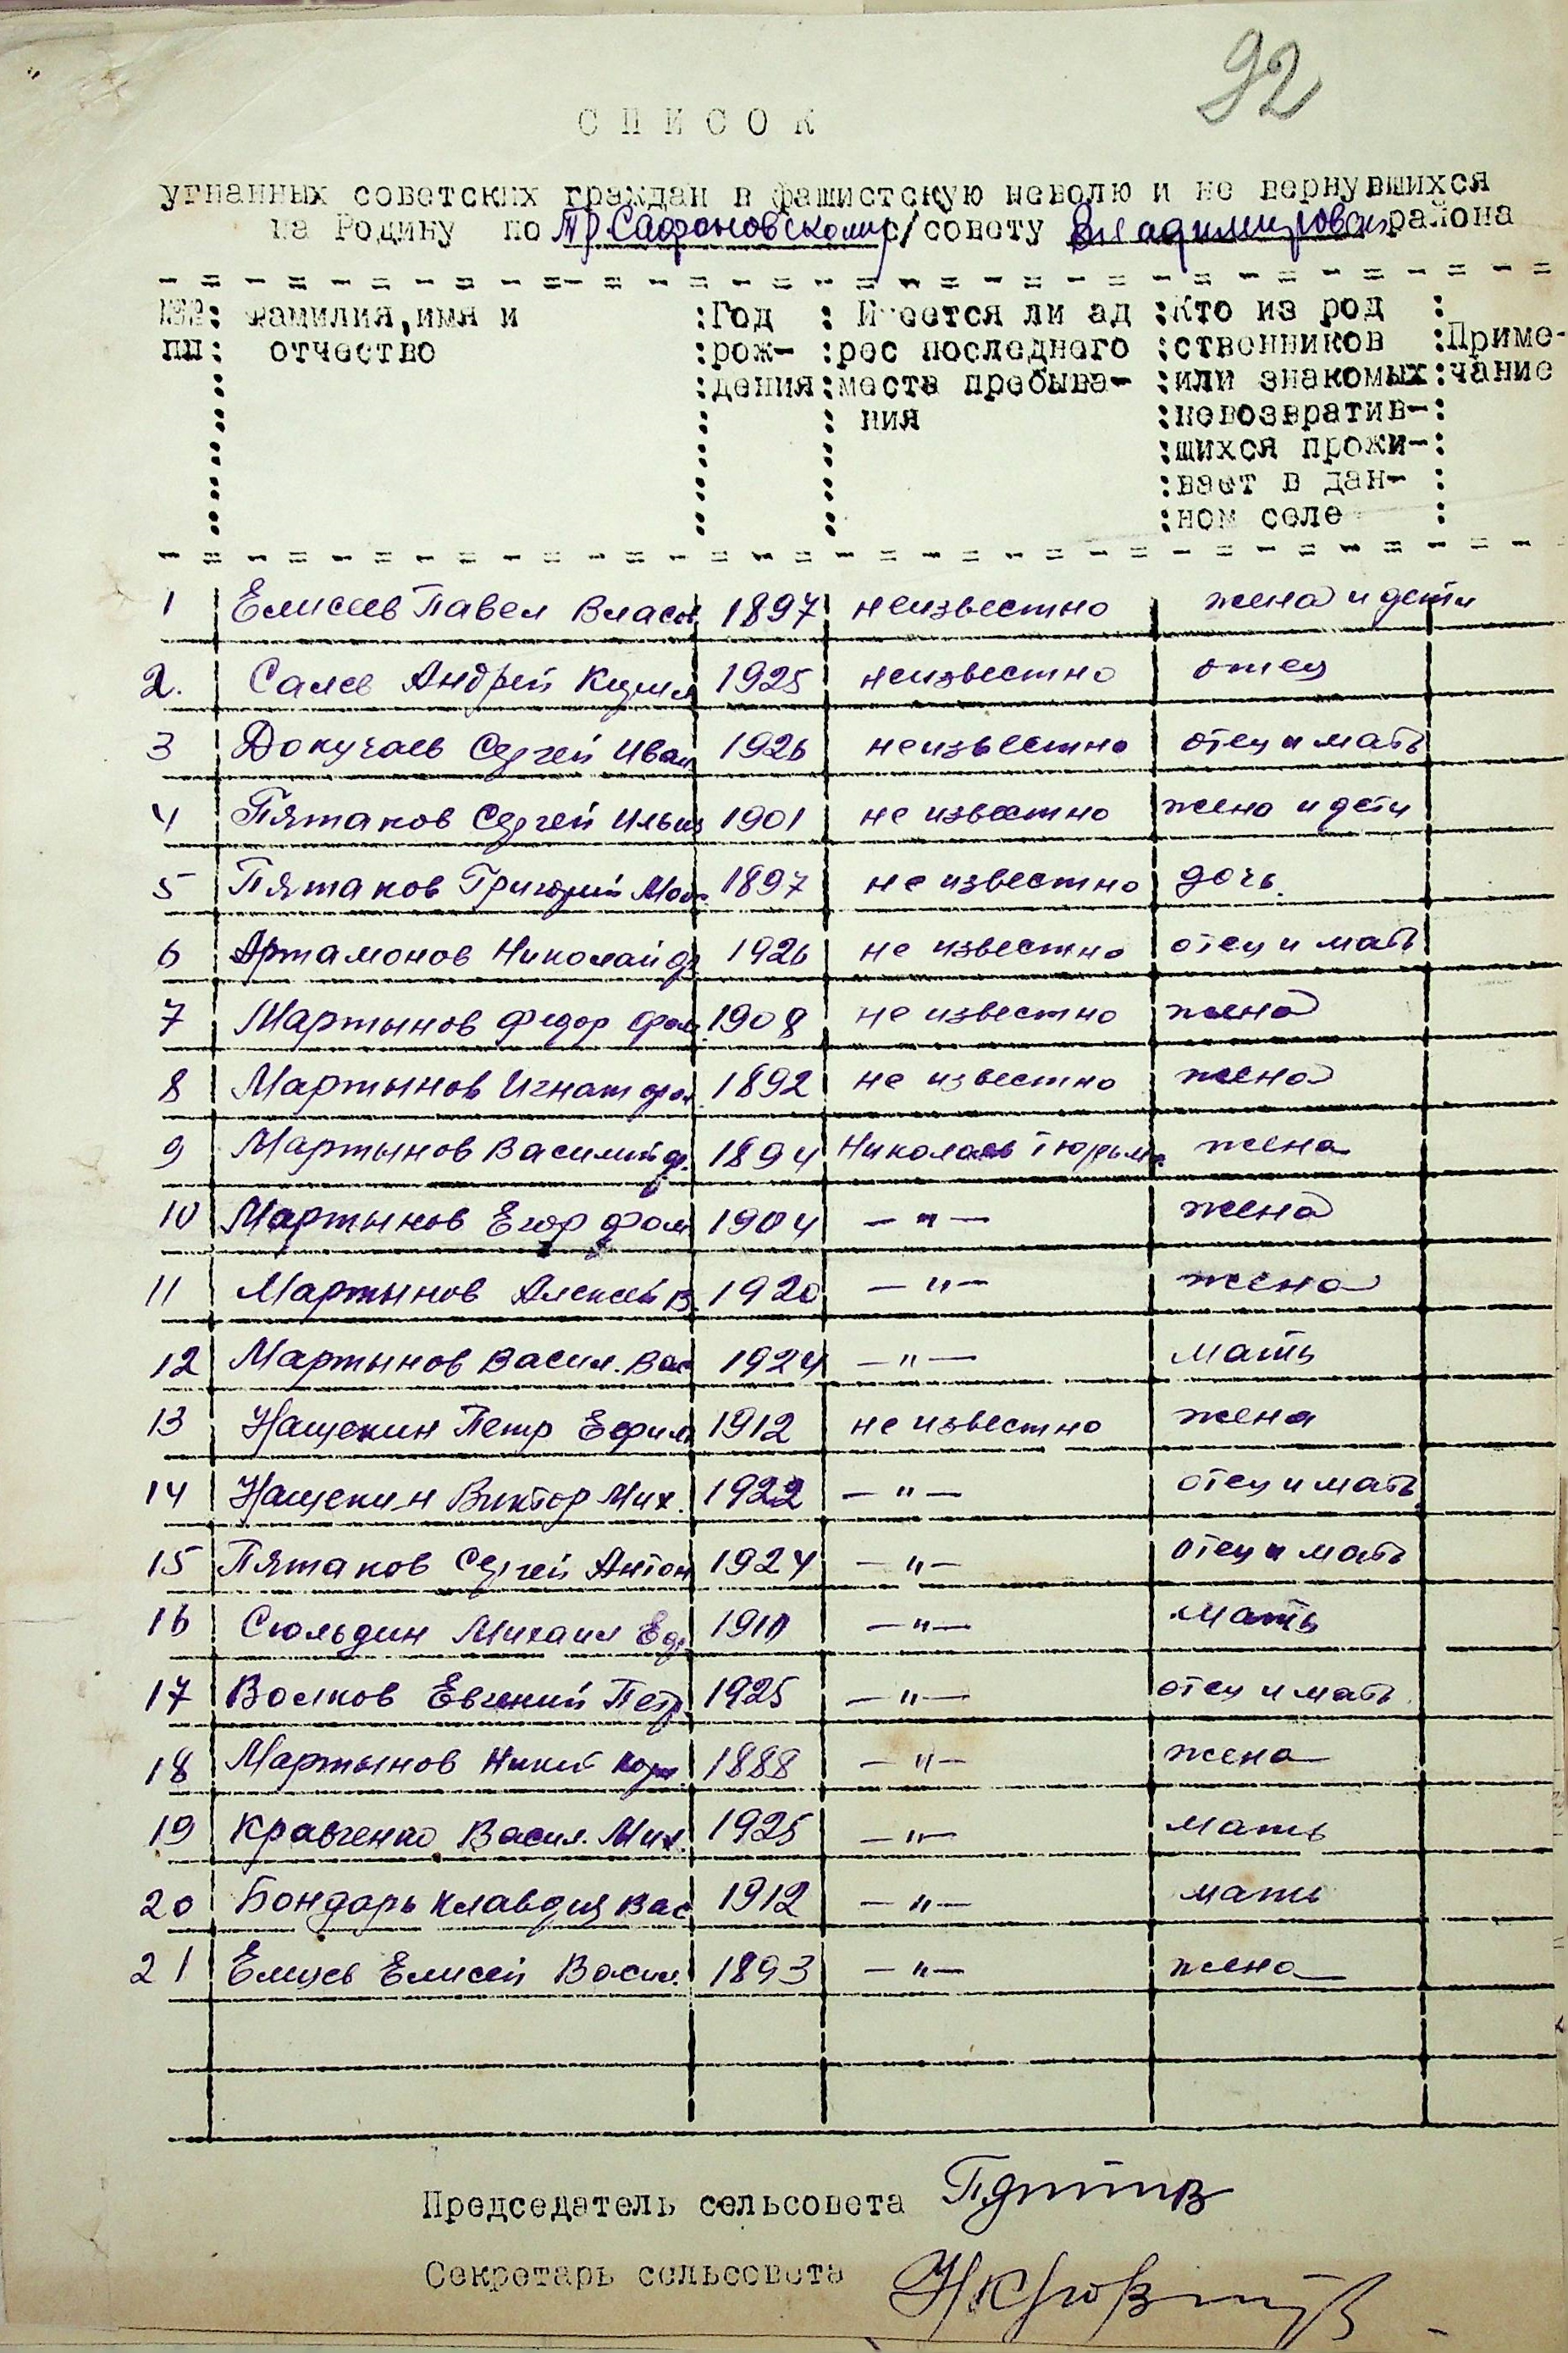 92
СПИСОК
угнанных советских граждан в фашистскую неволю и не вернувшихся
на Родину по Тр. Сафоновскому с/совету Владимировск района
№№ : Фамилия, имя и : Год : Имеется ли ад : Кто из род :
пп : отчество : рож- : рес последнего : ственников : Приме-
: дения : места пребыва- : или знакомых : чание
: ния : невозвратив- :
: шихся прожи- :
: вает в дан- :
: ном селе :
1 Елисеев Павел Власов 1897 неизвестно жена и дети
2. Салев Андрей Кузм 1925 неизвестно отец
3 Докучаев Сергей Иван 1926 неизвестно отец и мать
4 Пятаков Сергей Ильич 1901 не известно жена и дети
5 Пятаков Григорий 1897 не известно дочь.
6 Артамонов Николай 1926 не известно отец и мать
7 Мартынов Федор Фом. 1908 не известно жена
8 Мартынов Игнат Фом 1892 не известно жена
9 Мартынов Василий Ф. 1894 Николаев тюрьма жена
10 Мартынов Егор Фом 1904 — " — жена
11 Мартынов Алексей В. 1920 — " — жена
12 Мартынов Васил. Вас 1924 — " — мать
13 Нащекин Петр Ефим 1912 не известно жена
14 Нащекин Виктор Мих. 1922 — " — отец и мать
15 Пятаков Сергей Антон 1924 — " — отец и мать
16 Сюльдин Михаил 1910 — " — мать
17 Волков Евгений Петр. 1925 — " — отец и мать
18 Мартынов 1888 — " — жена
19 Кравченко Васил. Мих. 1925 — " — мать
20 Бондарь Клавдия Вас 1912 — " — мать
21 Елисеев Елисей Васил. 1893 — " — жена
Председатель сельсовета
Секретарь сельсовета